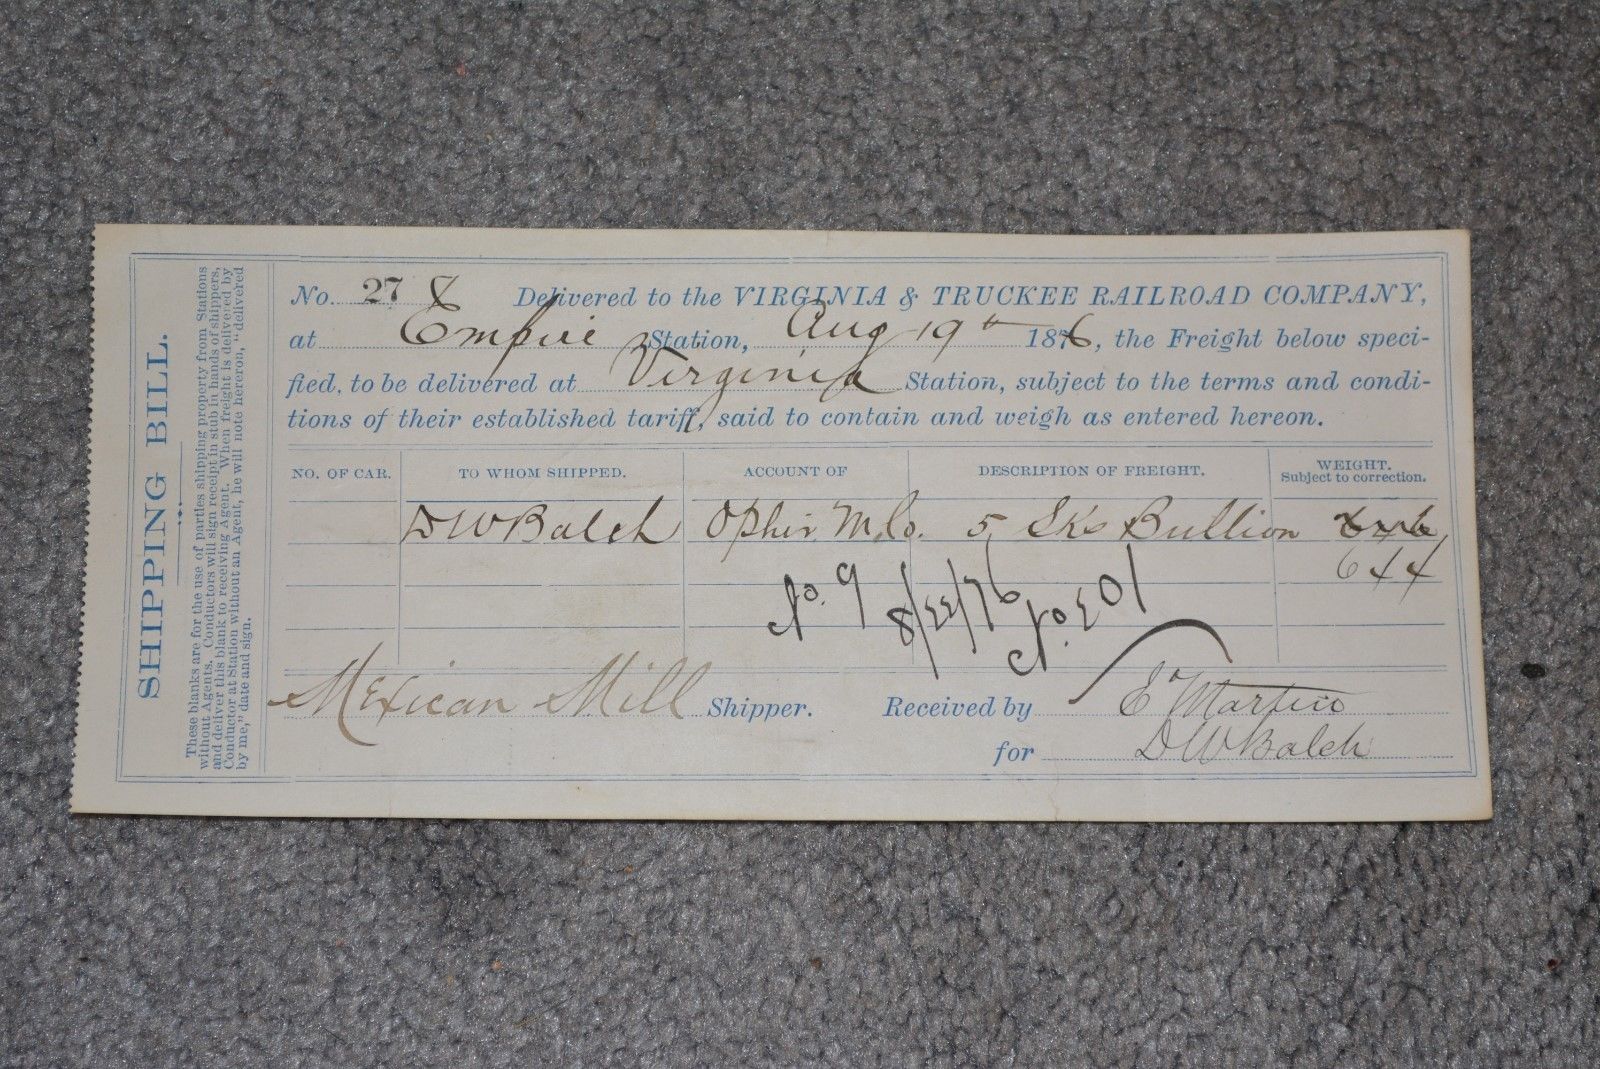 SHIPPING BILL.
These blanks are for the use of parties shipping property from Stations
without Agents. Conductors will sign receipt in stub in hands of shippers,
and deliver this blank to receiving Agent. When freight is delivered by
Conductor at Station without an Agent, he will note hereon, "delivered
by me," date and sign.
No. 27 8 Delivered to the VIRGINIA & TRUCKEE RAILROAD COMPANY,
at Empire Station, Aug 19th 1876, the Freight below speci-
fied, to be delivered at Virginia Station, subject to the terms and condi-
tions of their established tariff, said to contain and weigh as entered hereon.
NO. OF CAR. TO WHOM SHIPPED. ACCOUNT OF DESCRIPTION OF FREIGHT. WEIGHT.
Subject to correction.
DW Balch Ophir M. Co. 5 Sks Bullion
644
No. 9 8/22/76 No. 201
Mexican Mill Shipper. Received by E Martin
for DW Balch